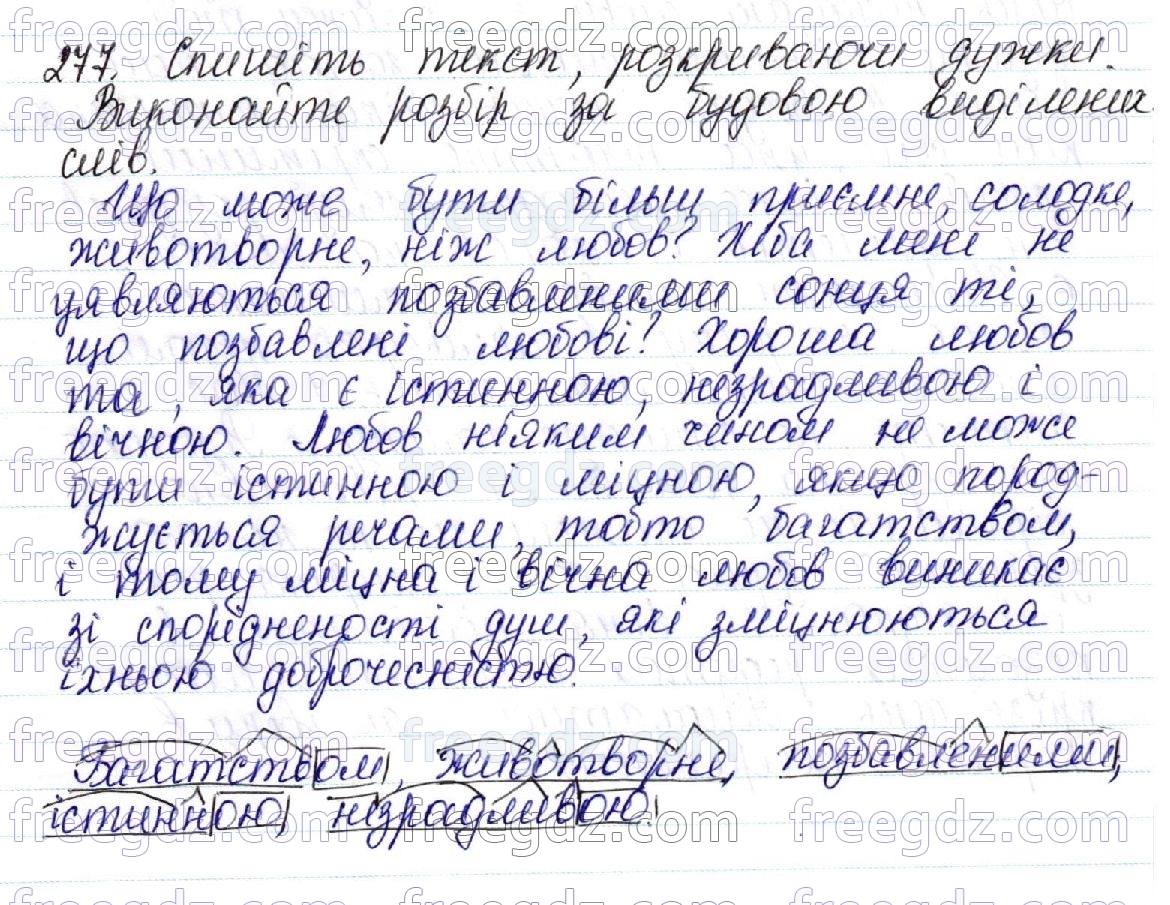 277. Спишіть текст, розкриваючи дужки.
Виконайте розбір за будовою виділених
слів.
Що може бути більш приємне, солодке,
животворне, ніж любов? Хіба мені не
уявляються позбавленими сонця ті,
що позбавлені любові? Хороша любов
та, яка є істинною, незрадливою і
вічною. Любов ніяким чином не може
бути істинною і міцною, якщо пород-
жується речами, тобто багатством,
і тому міцна і вічна любов виникає
зі спорідненості душ, які зміцнюються
їхньою доброчесністю.
Багатством, животворне, позбавленими,
істинною, незрадливою.